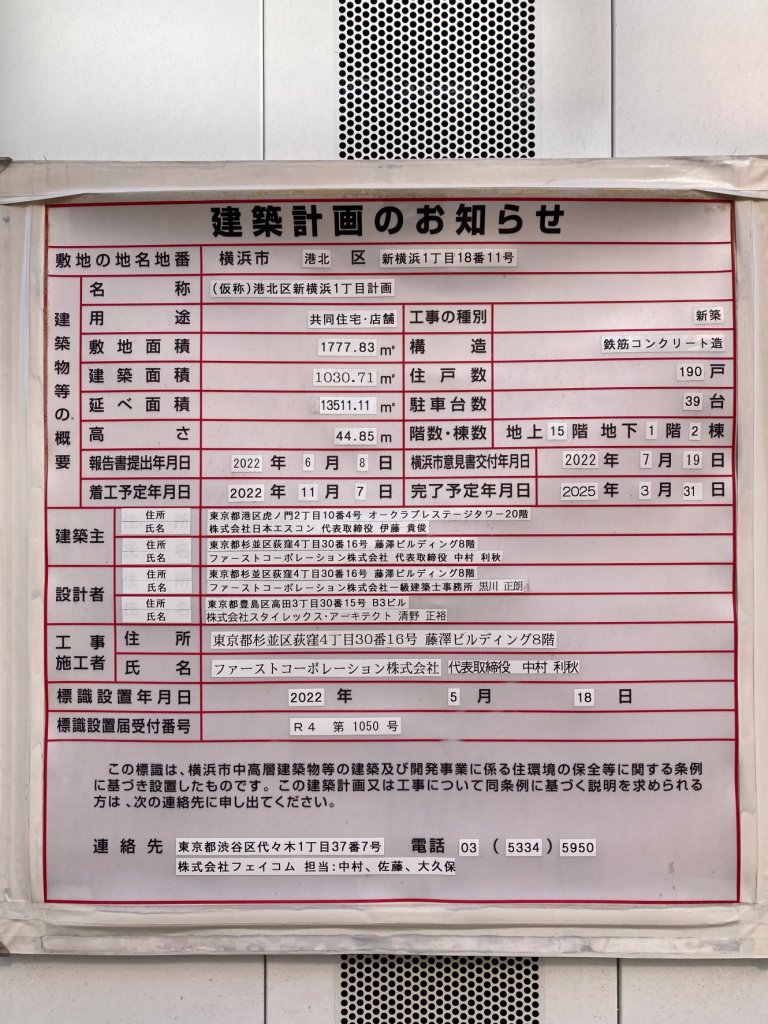 建築計画のお知らせ
敷地の地名地番 横浜市 港北 区 新横浜1丁目18番11号
建築物等の概要
名称 (仮称)港北区新横浜1丁目計画
用途 共同住宅・店舗 工事の種別 新築
敷地面積 1777.83 ㎡ 構造 鉄筋コンクリート造
建築面積 1030.71 ㎡ 住戸数 190 戸
延べ面積 13511.11 ㎡ 駐車台数 39 台
高さ 44.85 m 階数・棟数 地上 15 階 地下 1 階 2 棟
報告書提出年月日 2022 年 6 月 8 日 横浜市意見書交付年月日 2022 年 7 月 19 日
着工予定年月日 2022 年 11 月 7 日 完了予定年月日 2025 年 3 月 31 日
建築主 住所 東京都港区虎ノ門2丁目10番4号 オークラプレステージタワー20階
氏名 株式会社日本エスコン 代表取締役 伊藤 貴俊
住所 東京都杉並区荻窪4丁目30番16号 藤澤ビルディング8階
氏名 ファーストコーポレーション株式会社 代表取締役 中村 利秋
設計者 住所 東京都杉並区荻窪4丁目30番16号 藤澤ビルディング8階
氏名 ファーストコーポレーション株式会社一級建築士事務所 黒川 正朗
住所 東京都豊島区高田3丁目30番15号 B3ビル
氏名 株式会社スタイレックス・アーキテクト 清野 正裕
工事施工者 住所 東京都杉並区荻窪4丁目30番16号 藤澤ビルディング8階
氏名 ファーストコーポレーション株式会社 代表取締役 中村 利秋
標識設置年月日 2022 年 5 月 18 日
標識設置届受付番号 R4 第 1050 号
この標識は、横浜市中高層建築物等の建築及び開発事業に係る住環境の保全等に関する条例
に基づき設置したものです。この建築計画又は工事について同条例に基づく説明を求められる
方は、次の連絡先に申し出てください。
連絡先 東京都渋谷区代々木1丁目37番7号 電話 03 (5334) 5950
株式会社フェイコム 担当:中村、佐藤、大久保